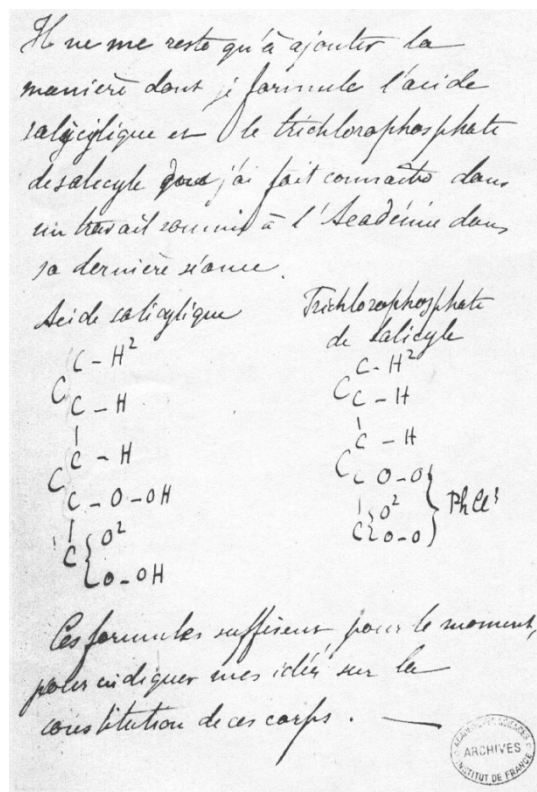 Il ne me reste qu'à ajouter la
manière dont je formule l'acide
salycilique et le trichlorophosphate
de salicyle que j'ai fait connaître dans
un travail soumis à l'Académie dans
sa dernière séance.
Acide salicylique
Trichlorophosphate
de salicyle
C - H²
C
C - H
C - H
C
C - O - OH
O²
C
O - OH
C - H²
C
C - H
C - H
C
C O - O
O²
PhCl³
C O - O
Ces formules suffisent pour le moment,
pour indiquer mes idées sur la
constitution de ces corps. —
ACADÉMIE DES SCIENCES
ARCHIVES
INSTITUT DE FRANCE